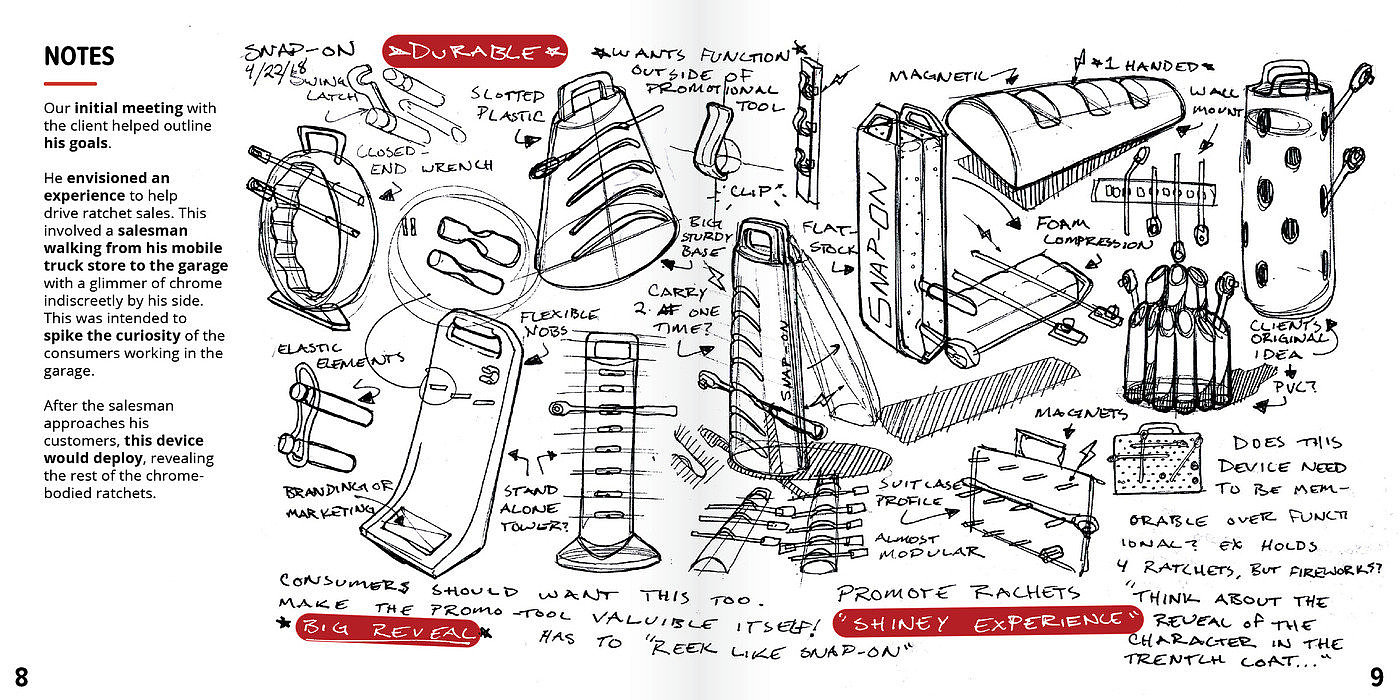 NOTES
Our initial meeting with
the client helped outline
his goals.
He envisioned an
experience to help
drive ratchet sales. This
involved a salesman
walking from his mobile
truck store to the garage
with a glimmer of chrome
indiscreetly by his side.
This was intended to
spike the curiosity of the
consumers working in the
garage.
After the salesman
approaches his
customers, this device
would deploy, revealing
the rest of the chrome-
bodied ratchets.
8
SNAP-ON
4/22/18
DURABLE
WANTS FUNCTION
OUTSIDE OF
PROMOTIONAL
TOOL
SWING
LATCH
CLOSED-
END WRENCH
SLOTTED
PLASTIC
"CLIP"
MAGNETIC
#1 HANDED
WALL
MOUNT
BIG
STURDY
BASE
FLAT-
STOCK
SNAP-ON
FOAM
COMPRESSION
CARRY
2 AT ONE
TIME?
SNAP-ON
FLEXIBLE
NOBS
ELASTIC
ELEMENTS
CLIENTS
ORIGINAL
IDEA
PVC?
BRANDING OR
MARKETING
STAND
ALONE
TOWER?
MAGNETS
SUITCASE
PROFILE
ALMOST
MODULAR
DOES THIS
DEVICE NEED
TO BE MEM-
ORABLE OVER FUNCTI
IONAL? EX HOLDS
4 RATCHETS, BUT FIREWORKS?
CONSUMERS SHOULD WANT THIS TOO.
MAKE THE PROMO-TOOL VALUIBLE ITSELF!
BIG REVEAL
HAS TO "REEK LIKE SNAP-ON"
PROMOTE RACHETS
"SHINEY EXPERIENCE"
"THINK ABOUT THE
REVEAL OF THE
CHARACTER IN THE
TRENTCH COAT..."
9